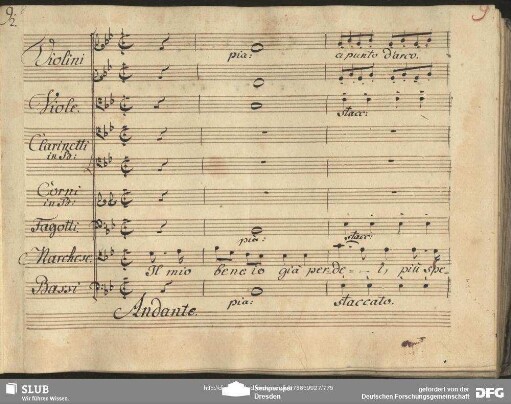 9
Violini
pia:
a punto d'arco.
Viole.
stacc:
Clarinetti
in B:
Corni
in B:
Fagotti
pia:
stacc:
Marchese.
Il mio bene io già perde- - i, più spe-
Bassi
pia:
staccato.
Andante.
SLUB
Wir führen Wissen.
Dresden
gefördert von der
Deutschen Forschungsgemeinschaft
DFG